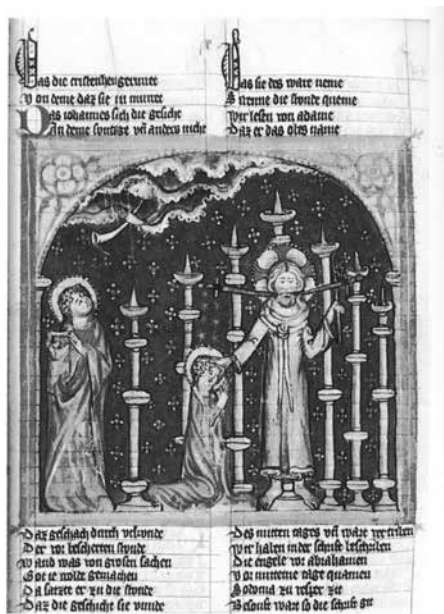 Das die
Von deme daz sie in
Das iohannes sich die
An deme vn anders nicht
Das sie des ware neme
Swenne die stunde queme
Wir lesen von adame
Daz er das obes name
Daz geschach durch vrkunde
Der vor bescherten stunde
Wand was von grosen sachen
Got ie wolde gemachen
Da satzte er zu die stunde
Daz die geschicht sie vunde
Des mitten tages vn ware vertriben
Wir haben in der schrift beschriben
Die engele vor abrahamen
Vor mitteme tage quamen
Sodoma zu vesper zit
Besouft wart so die schrift git